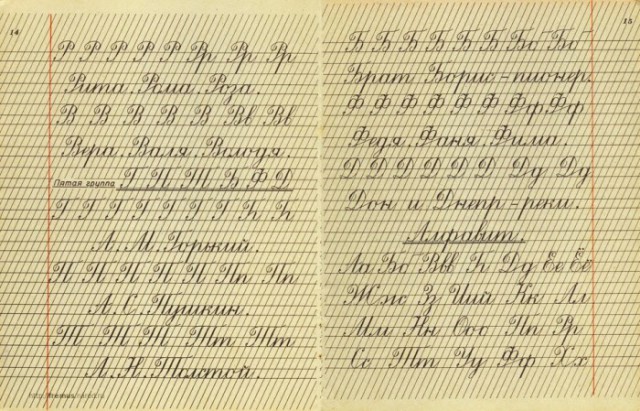 14
Р Р Р Р Р Р Рр Рр Рр
Рита. Рома. Роза.
В В В В В В Вв Вв
Вера. Валя. Володя.
Пятая группа Г П Т Б Ф Д
Г Г Г Г Г Г Г Гг Гг
А. М. Горький.
П П П П П П Пп Пп
А. С. Пушкин.
Т Т Т Т Тт Тт
Л. Н. Толстой.
http://fremus.narod.ru
15
Б Б Б Б Б Б Б Бб Бб
Брат Борис - пионер.
Ф Ф Ф Ф Ф Ф Фф Фф
Федя. Фаня. Фима.
Д Д Д Д Д Д Ду Ду
Дон и Днепр - реки.
Алфавит.
Аа Бб Вв Гг Дд Ее Ёё
Жж Зз Ии Йй Кк Лл
Мм Нн Оо Пп Рр
Сс Тт Уу Фф Хх